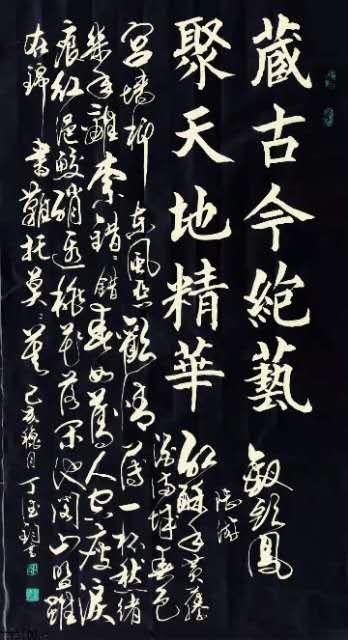 藏古今絶藝
聚天地精華
釵頭鳳
陸游
紅酥手黄藤
酒滿城春色
宮墻柳東風惡歡情薄一杯愁緒
幾年離索錯、錯春如舊人空瘦淚
痕紅浥鮫綃透桃花落閑池閣山盟雖
在錦書難托莫、莫己亥穗月丁